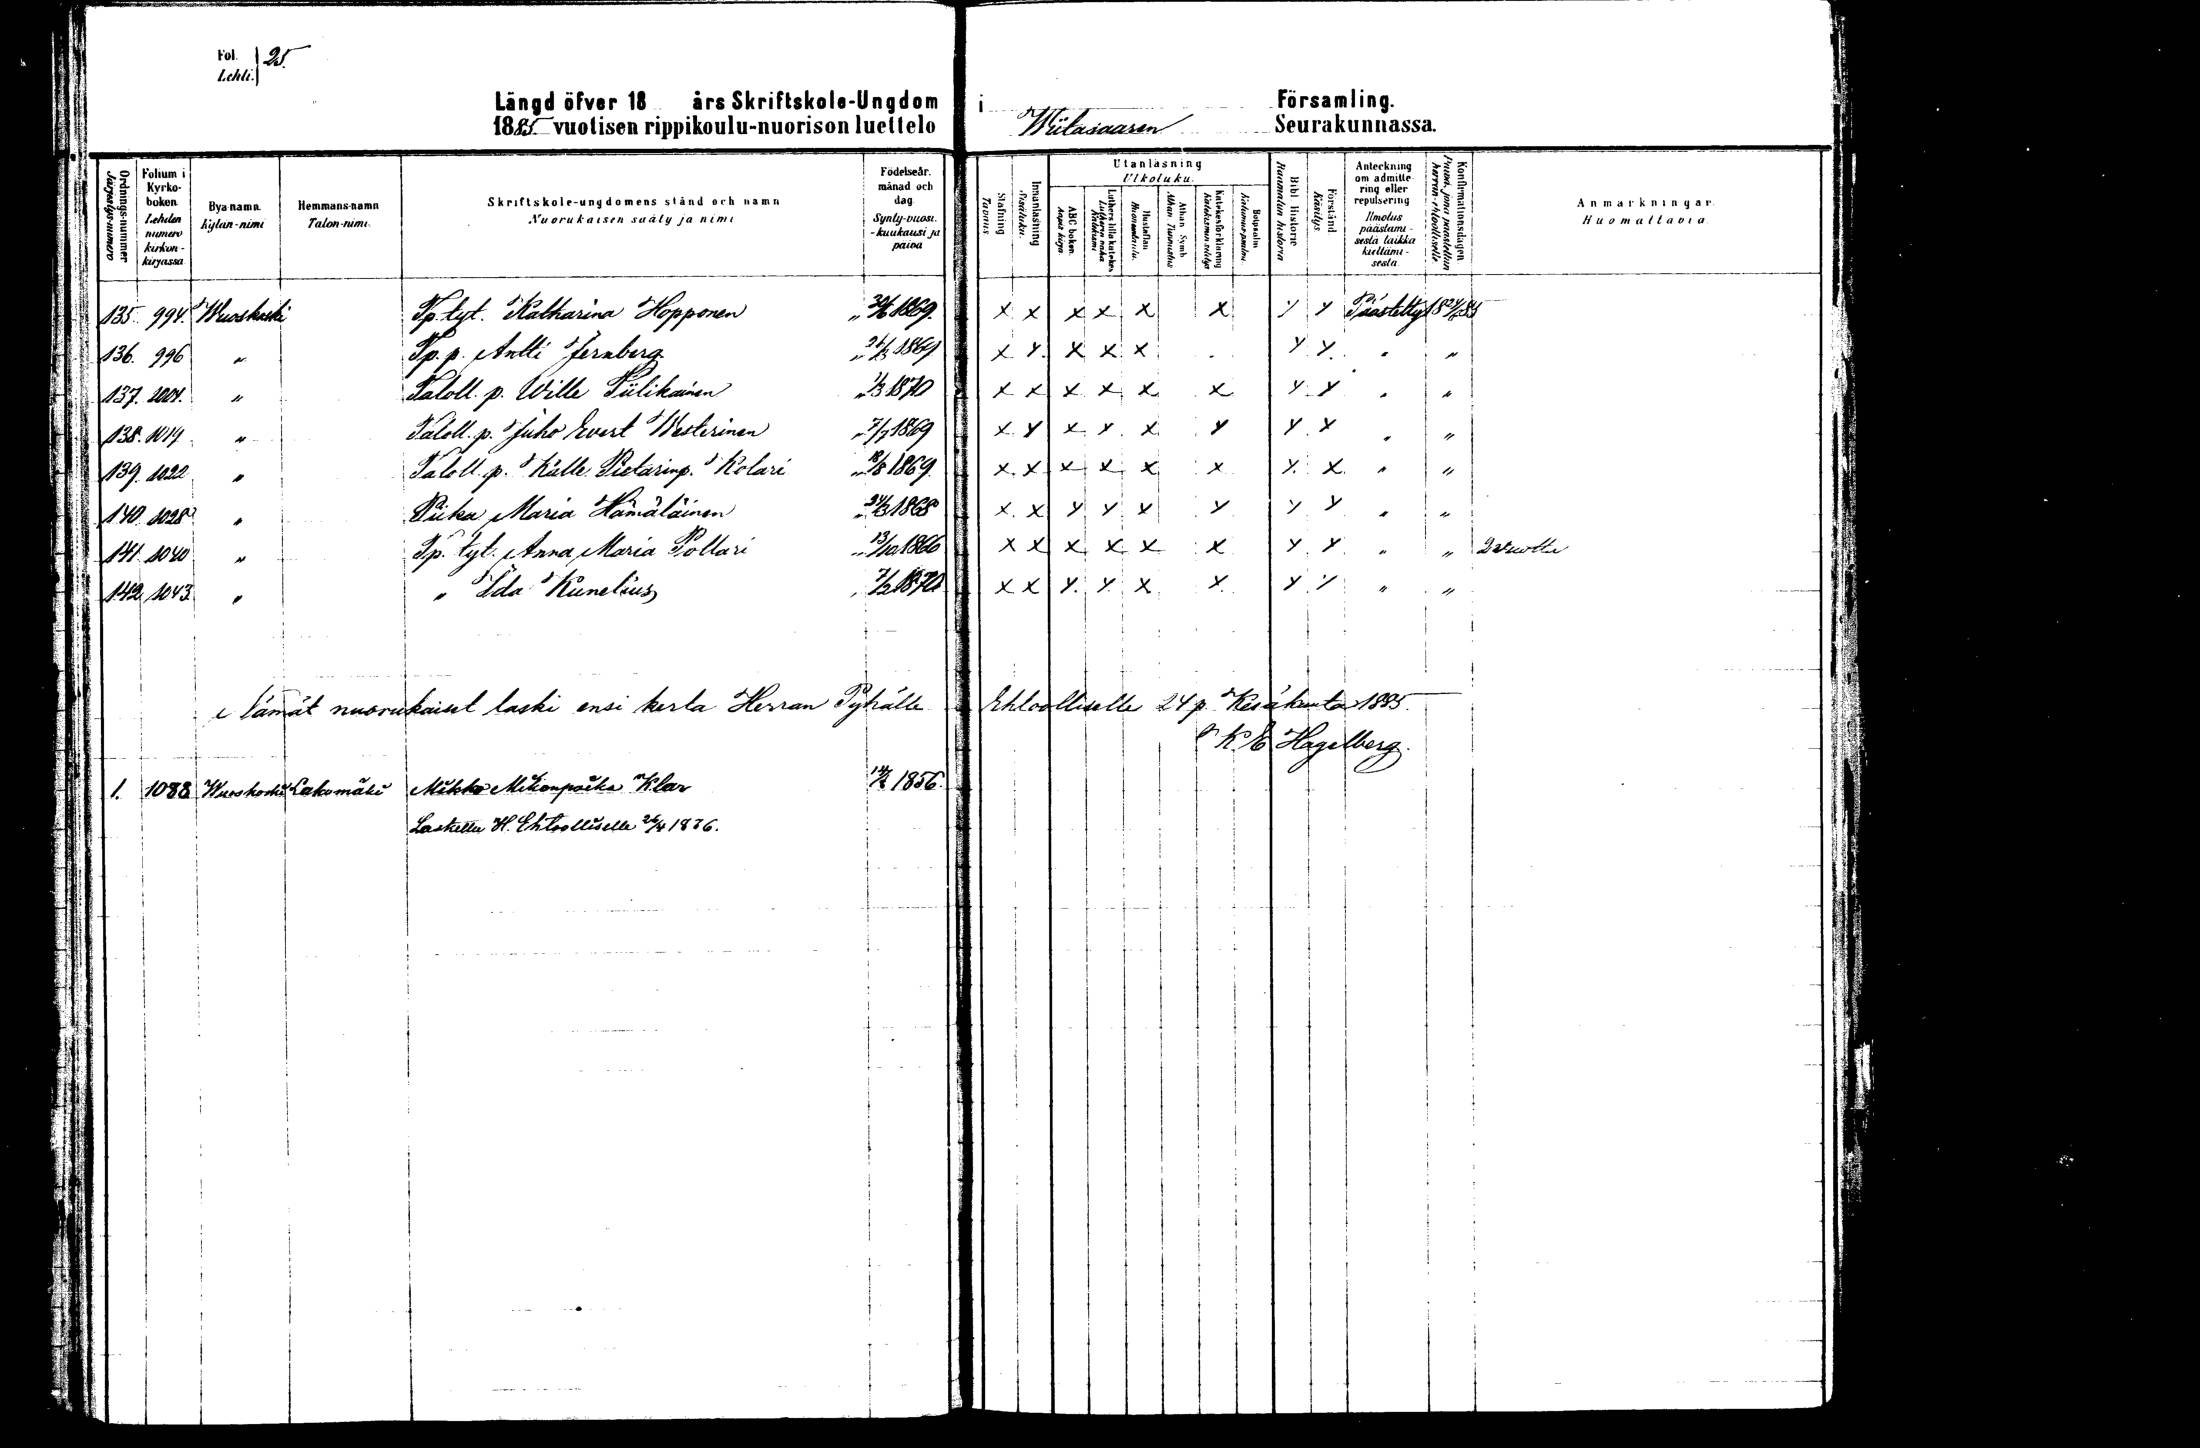 Fol. 25.
Lehti.
Längd öfver 18 års Skriftskole-Ungdom i Församling.
1885 vuotisen rippikoulu-nuorison luettelo Wiitasaaren Seurakunnassa.
Ordnings-nummer Järjestys-numero
Folium i Kyrko-boken. Lehden numero kirkon-kirjassa
Bya-namn. Kylän-nimi
Hemmans-namn Talon-nimi.
Skriftskole-ungdomens stånd och namn Nuorukaisen sääty ja nimi
Födelseår. månad och dag. Synty-vuosi. -kuukausi ja päivä
Stafning Tavaus
Innanläsning Sisäluku.
Utanläsning Ulkoluku.
ABC boken. Aapis kirja.
Luthers lilla katekes Lutheruksen vähä Katekismi
Hustaflan Huoneentaulu.
Athan. Symb. Athan. Tunnustus
Katekesförklaring Katekismun selitys
Botpsalm Katumus-psalmi.
Bibl. Historie Raamatun historia
Förstånd Käsitys
Anteckning om admittering eller repulsering Ilmotus päästämisestä taikka kieltämisestä.
Konfirmationsdagen. Päivä, jona päästettiin herran-ehtoolliselle
Anmärkningar. Huomattavia
135. 994. Wuoskoski Tp. tyt. Katharina Hopponen 1869. x x x x x x y y Päästetty 18 24/6 85
136. 996 " Tp. p. Antti Jernberg 1869 x y. x x x y y. " "
137. 1004. " Taloll. p. Wille Piilikainen 1/3 1870 x x x x x x y y " "
138. 1019. " Taloll. p. Juho Evert Westerinen 7/7 1869 x y x y. x y y x " "
139. 1022 " Taloll. p. Kalle Pietarinp. Kolari 18/8 1869. x x x x x x y. x " "
140. 1028 " Piika Maria Hämäläinen 24/3 1868 x. x y y x y y y " "
141. 1040 " Tp. tyt. Anna Maria Pollari 13/10 1866 x x x x x x y y " "
142. 1043. " " Ida Kunelius 7/2 1870 x x y. y. x y. y y " "
Nämät nuorukaiset laski ensi kerta Herran Pyhälle Ehtoolliselle 24 p. Kesäkuuta 1885.
K. E. Hagelberg.
1. 1088 Wuoskoski Lakomäki Mikko Mikonpoika Klar 1856.
Laskettu H. Ehtoolliselle 26/4 1886.